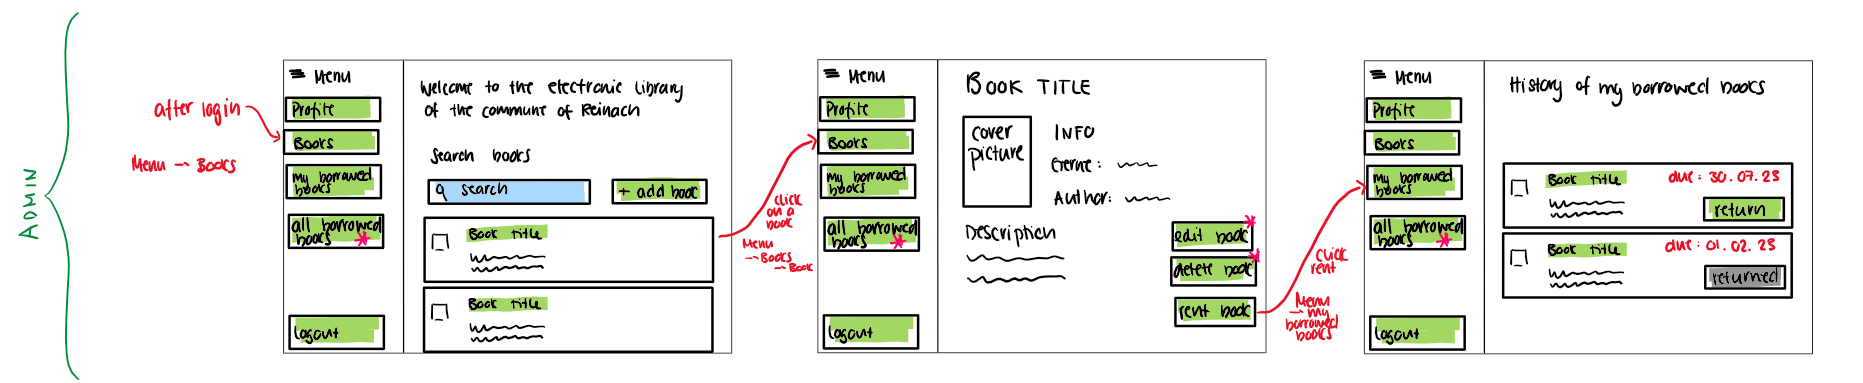 ADMIN
after login
Menu → Books
Menu
Profile
Books
my borrowed
books
all borrowed
books *
Logout
Welcome to the electronic library
of the commune of Reinach
Search books
search
+ add book
Book Title
Book Title
click
on a
book
Menu
→ Books
→ Book
Menu
Profile
Books
my borrowed
books
all borrowed
books *
Logout
BOOK TITLE
cover
picture
INFO
Genre:
Author:
Description
edit book *
delete book *
rent book
click
rent
Menu
→ my
borrowed
books
Menu
Profile
Books
my borrowed
books
all borrowed
books *
Logout
History of my borrowed books
Book Title
due: 30.07.23
return
Book Title
due: 01.02.23
returned